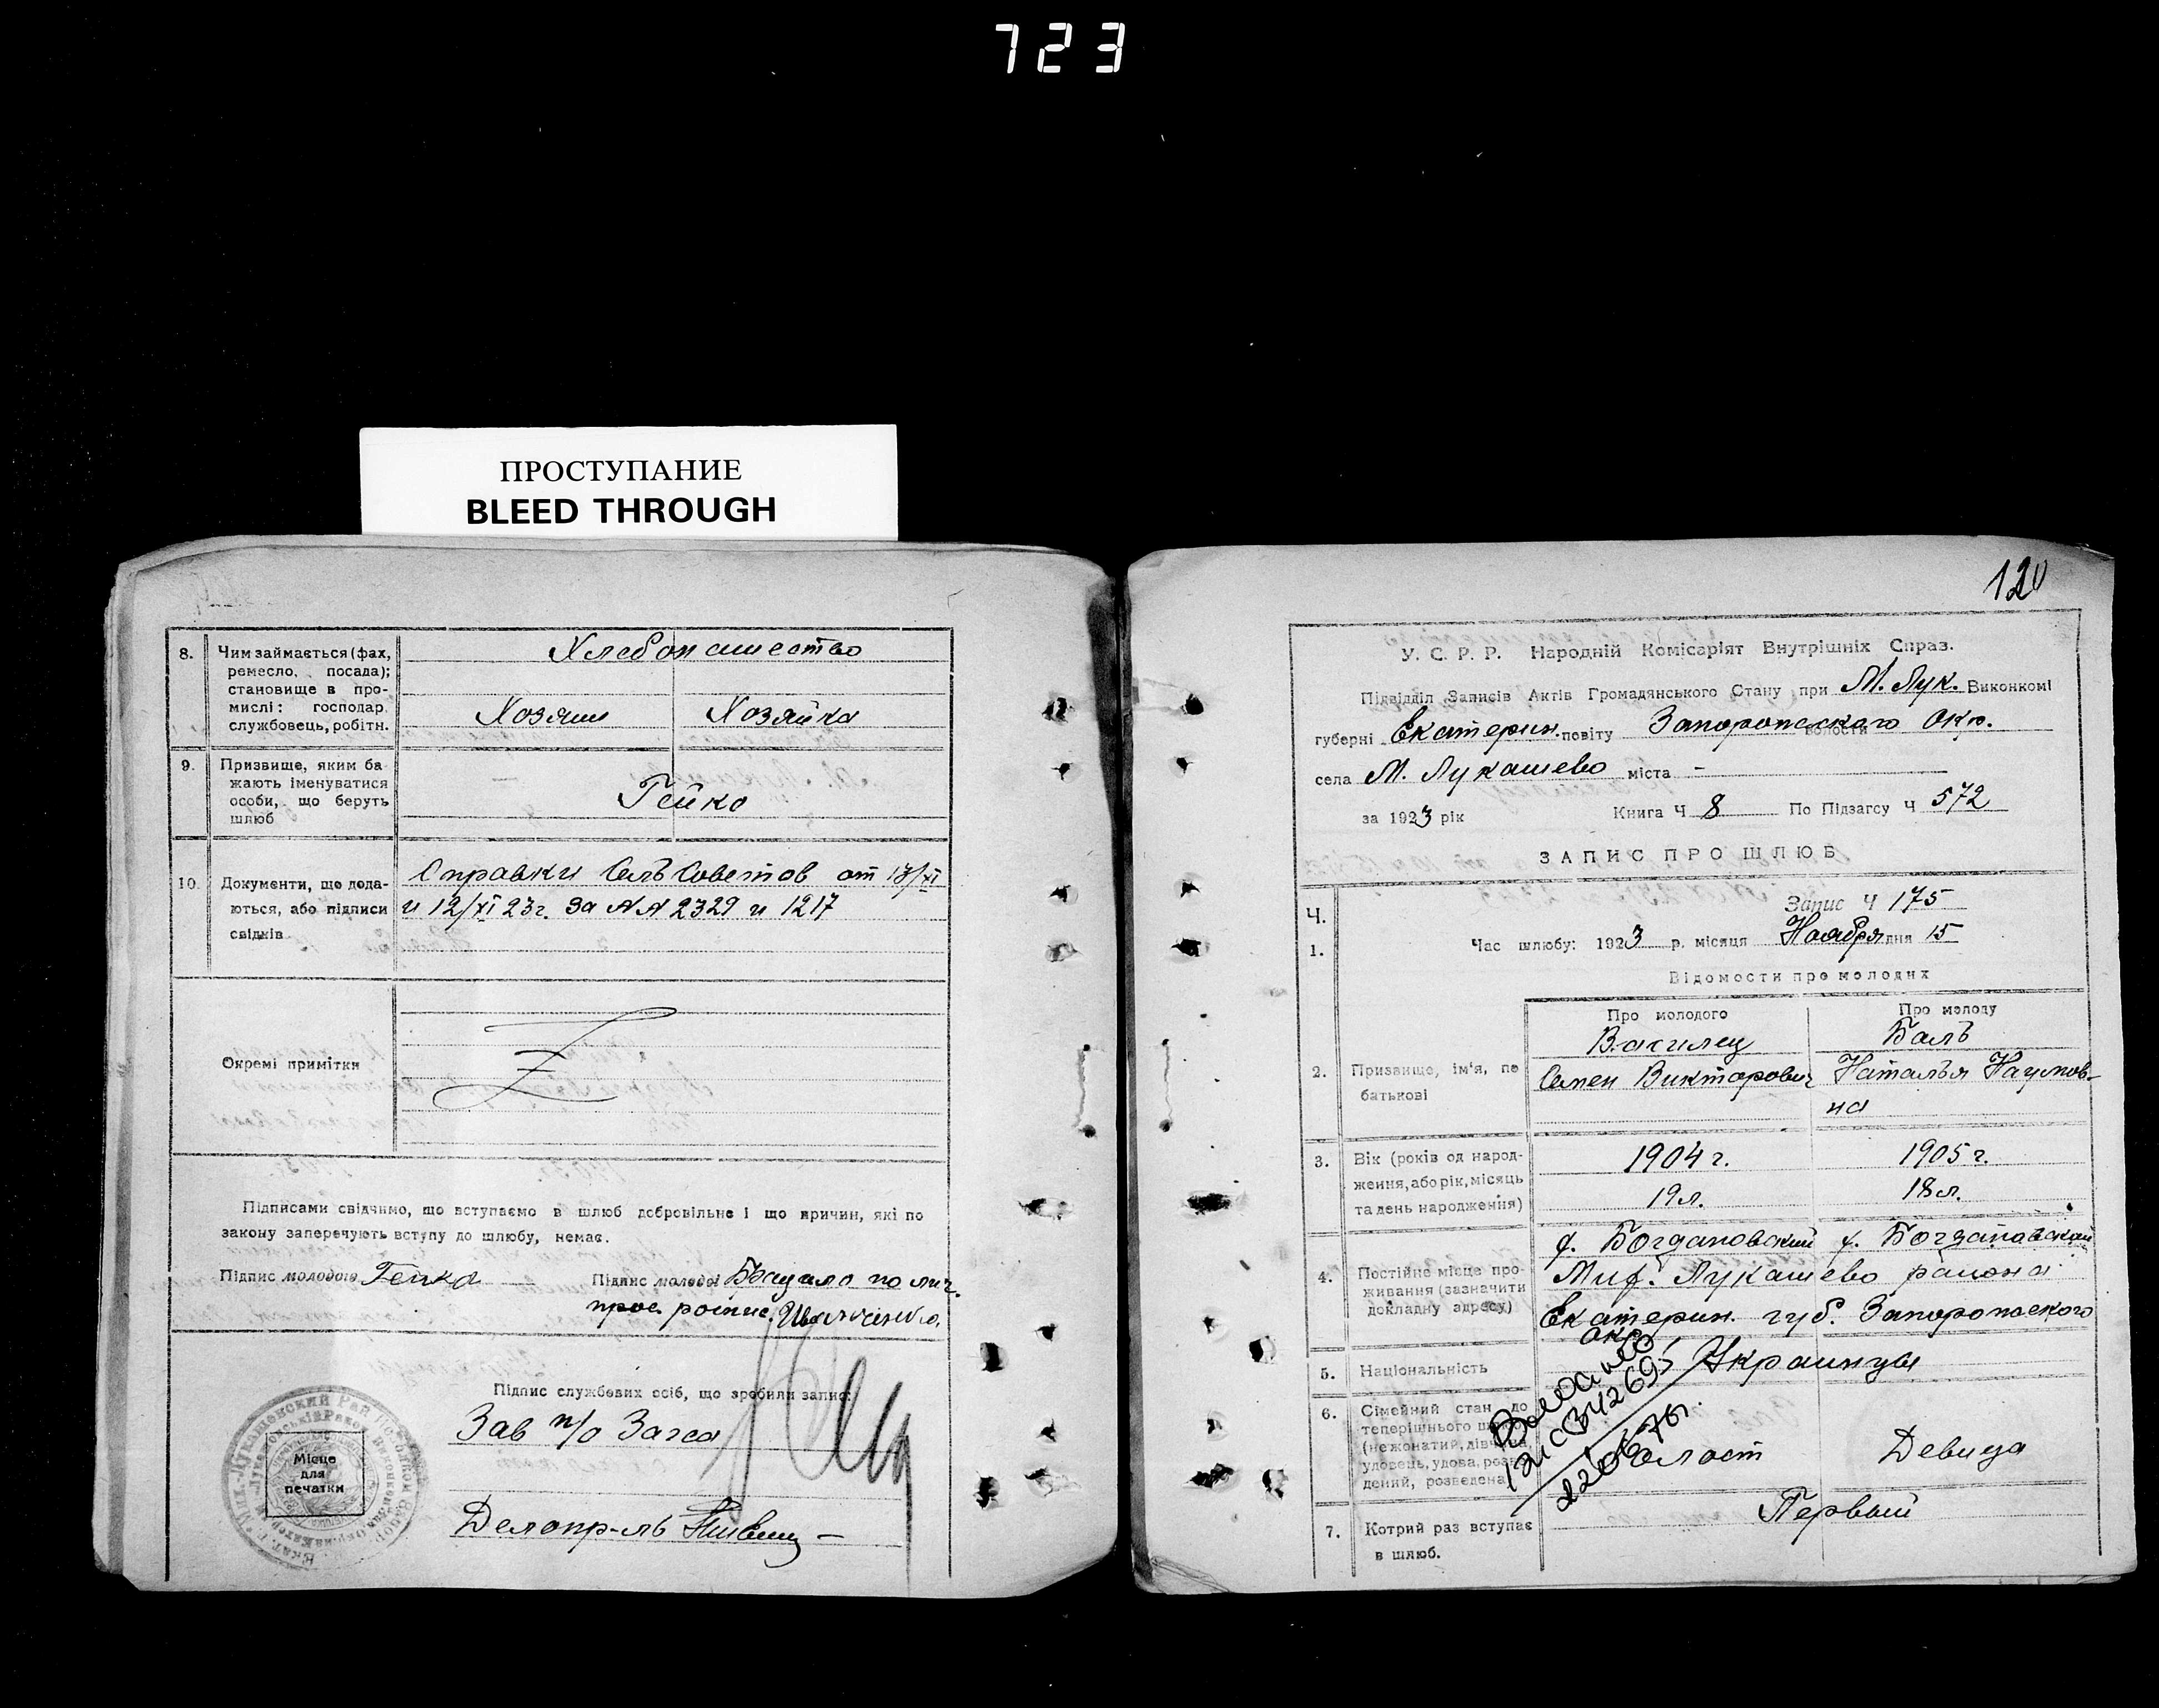 723
ПРОСТУПАНИЕ
BLEED THROUGH
8. Чим займається (фах,
ремесло, посада);
становище в про-
мислі: господар,
службовець, робітн.
Хлебопашество
Хозяин Хозяйка
9. Призвище, яким ба-
жають іменуватися
особи, що беруть
шлюб
Гейко
10. Документи, що дода-
ються, або підписи
свідків
Справки СельСоветов от 13/XI
и 12/XI 23г. за NN 2329 и 1217
Окремі примітки
Підписами свідчимо, що вступаємо в шлюб добровільне і що причин, які по
закону заперечують вступу до шлюбу, немає.
Підпис молодого Гейко Підпис молодої по лич.
прос. роспис.
Підпис службових осіб, що зробили запис:
Зав п/о Загса
Делопр-ль
Місце
для
печатки
120
У. С. Р. Р. Народній Комісаріят Внутрішніх Справ.
Підвідділ Записів Актів Громадянського Стану при М. Лук. Виконкомі
губерні Екатерин. повіту Запорожскаго волости Окр.
села М. Лукашево міста –
за 1923 рік Книга Ч 8 По Підзагсу Ч 572
ЗАПИС ПРО ШЛЮБ
Ч. Запис Ч 175
1. Час шлюбу: 1923 р. місяця Ноября дня 15
Відомости про молодих
Про молодого Про молоду
2. Призвище, ім'я, по
батькові
Василец Баль
Семен Викторович Наталья Наумов-
на
3. Вік (років од народ-
ження, або рік, місяць
та день народження)
1904 г. 1905 г.
19 л. 18 л.
4. Постійне місце про-
живання (зазначити
докладну адресу)
Богдановский Богдановский
Лукашево района
Екатерин. губ. Запорожского
окр.
5. Національність Украинцы
6. Сімейний стан до
теперішнього шлюбу
(нежонатий, дівчина,
удовець, удова, розве-
дений, розведена)
Холост Девица
7. Котрий раз вступає
в шлюб.
Первый